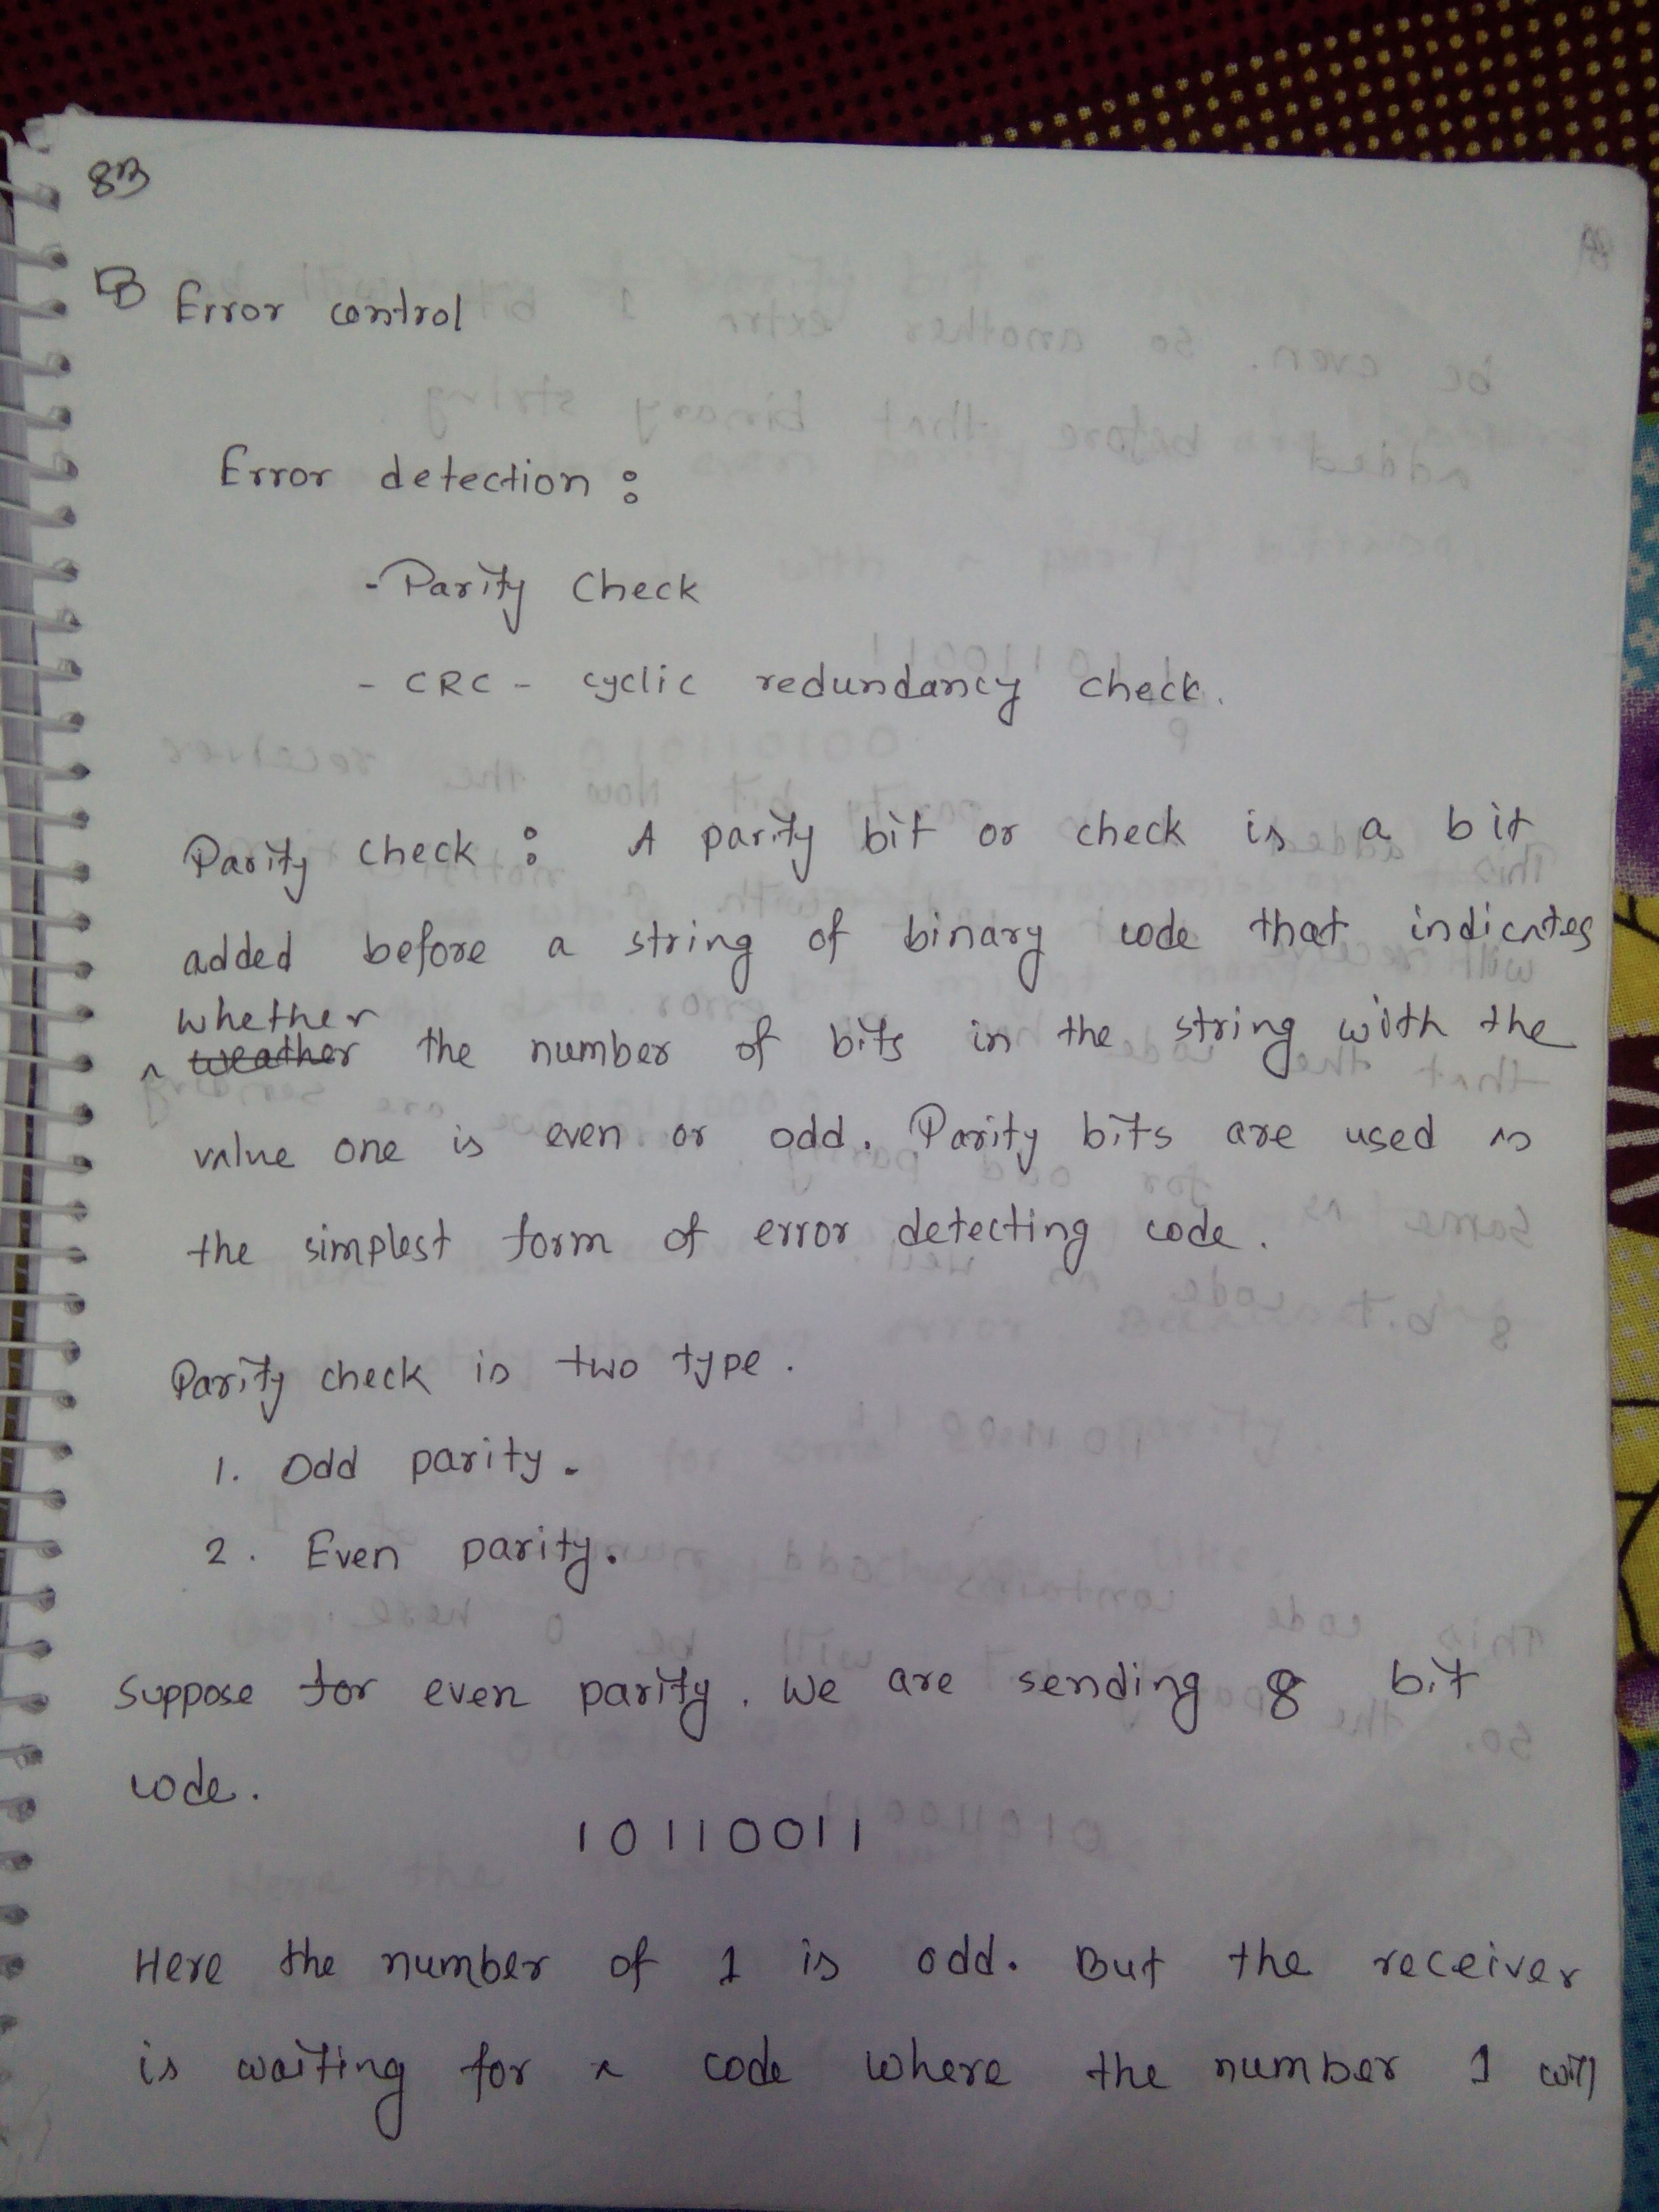 8B
Error control
Error detection :
- Parity Check
- CRC - cyclic redundancy check.
Parity check : A parity bit or check is a bit
added before a string of binary code that indicates
whether
weather the number of bits in the string with the
value one is even or odd. Parity bits are used as
the simplest form of error detecting code.
Parity check is two type.
1. Odd parity.
2. Even parity.
Suppose for even parity. We are sending 8 bit
code.
10110011
Here the number of 1 is odd. But the receiver
is waiting for a code where the number 1 will